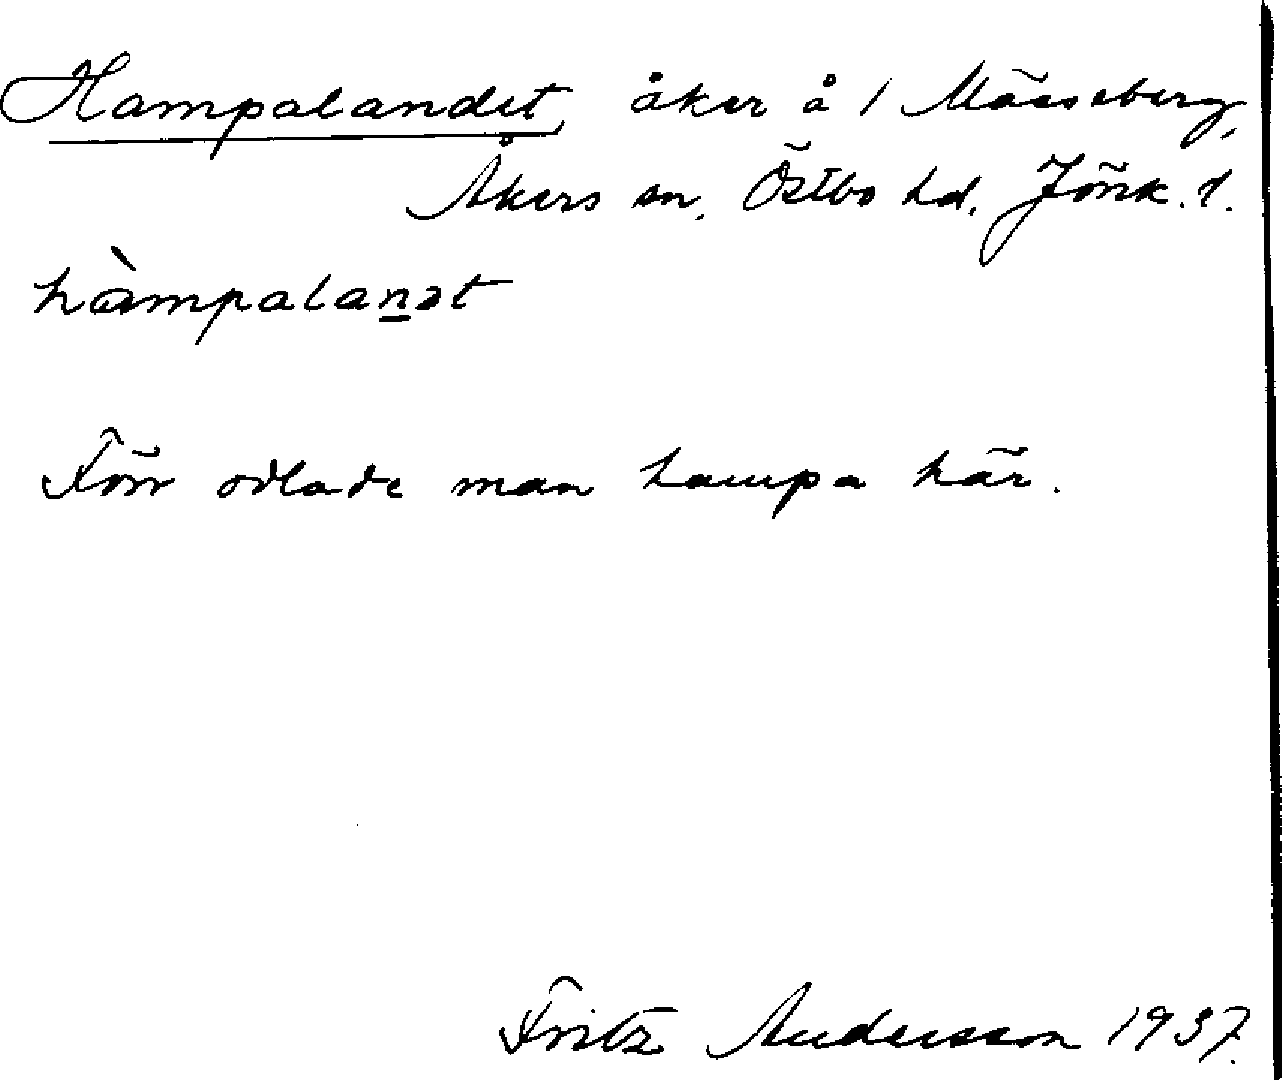 Hampalandet, åker å 1 Måsseberg,
Åkers sn, Östbo hd, Jönk. l.
hàmpalanət
Förr odlade man hampa här.
Fritz Andersson 1937.